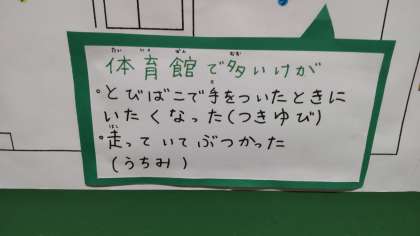 体育館で多いけが
。とびばこで手をついたときに
いたくなった(つきゆび)
。走っていてぶつかった
(うちみ)